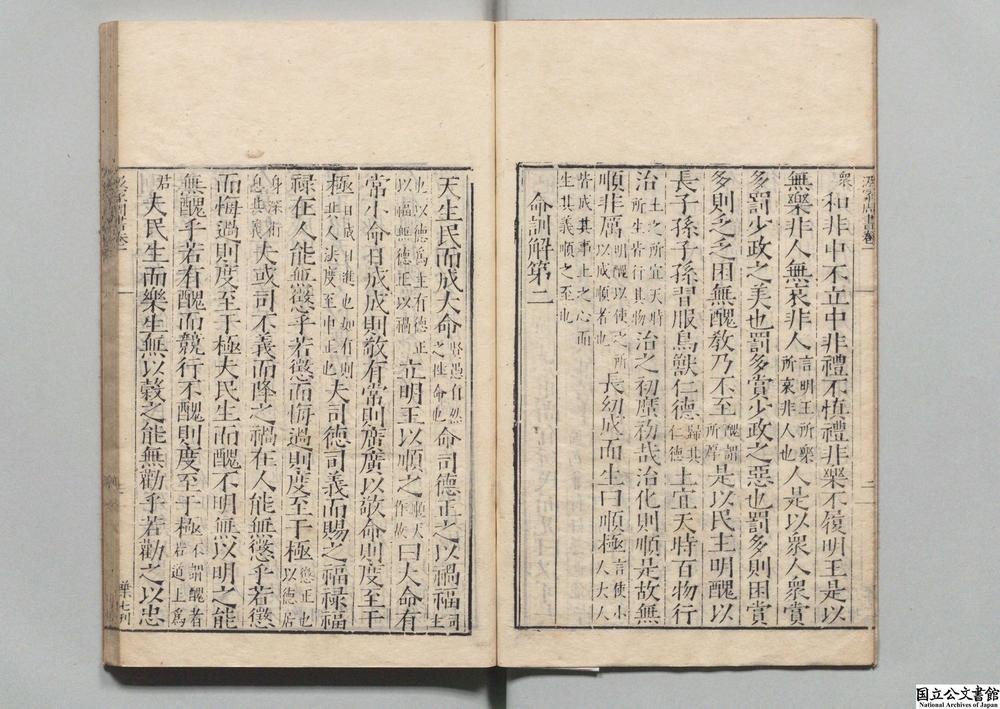 衆和非中不立中非禮不愼禮非樂不履明王是以
無樂非人無哀非人言明王所樂所哀非人也人是以衆人衆賞
多罰少政之美也罰多賞少政之惡也罰多則困賞
多則乏乏困無醜教乃不至醜謂所厚是以民主明醜以
長子孫子孫習服鳥獸仁德歸其仁德土宜天時百物行
治土之所宜天時所生皆行其物治之初厲初哉治化則順是故無
順非厲明醜以使之所以成順者也長幼成而生曰順極言使小人大人
皆成其事上之心而生其義順之至也
命訓解第二
天生民而成大命賢愚自然之性命也命司德正之以禍福司主
也以德爲主有德正以福無德正以禍立明王以順之順天作故曰大命有
常小命日成成則敬有常則廣廣以敬命則度至于
極日成日進也如有則其人法度至中正也夫司德司義而賜之福祿福
祿在人能無懲乎若懲而悔過則度至于極懲正也以德居
身深術息其義夫或司不義而降之禍在人能無懲乎若懲
而悔過則度至于極夫民生而醜不明無以明之能
無醜乎若有醜而競行不醜則度至于極不謂醜者若道上爲
君夫民生而樂生無以穀之能無勸乎若勸之以忠
華七刋
国立公文書館
National Archives of Japan